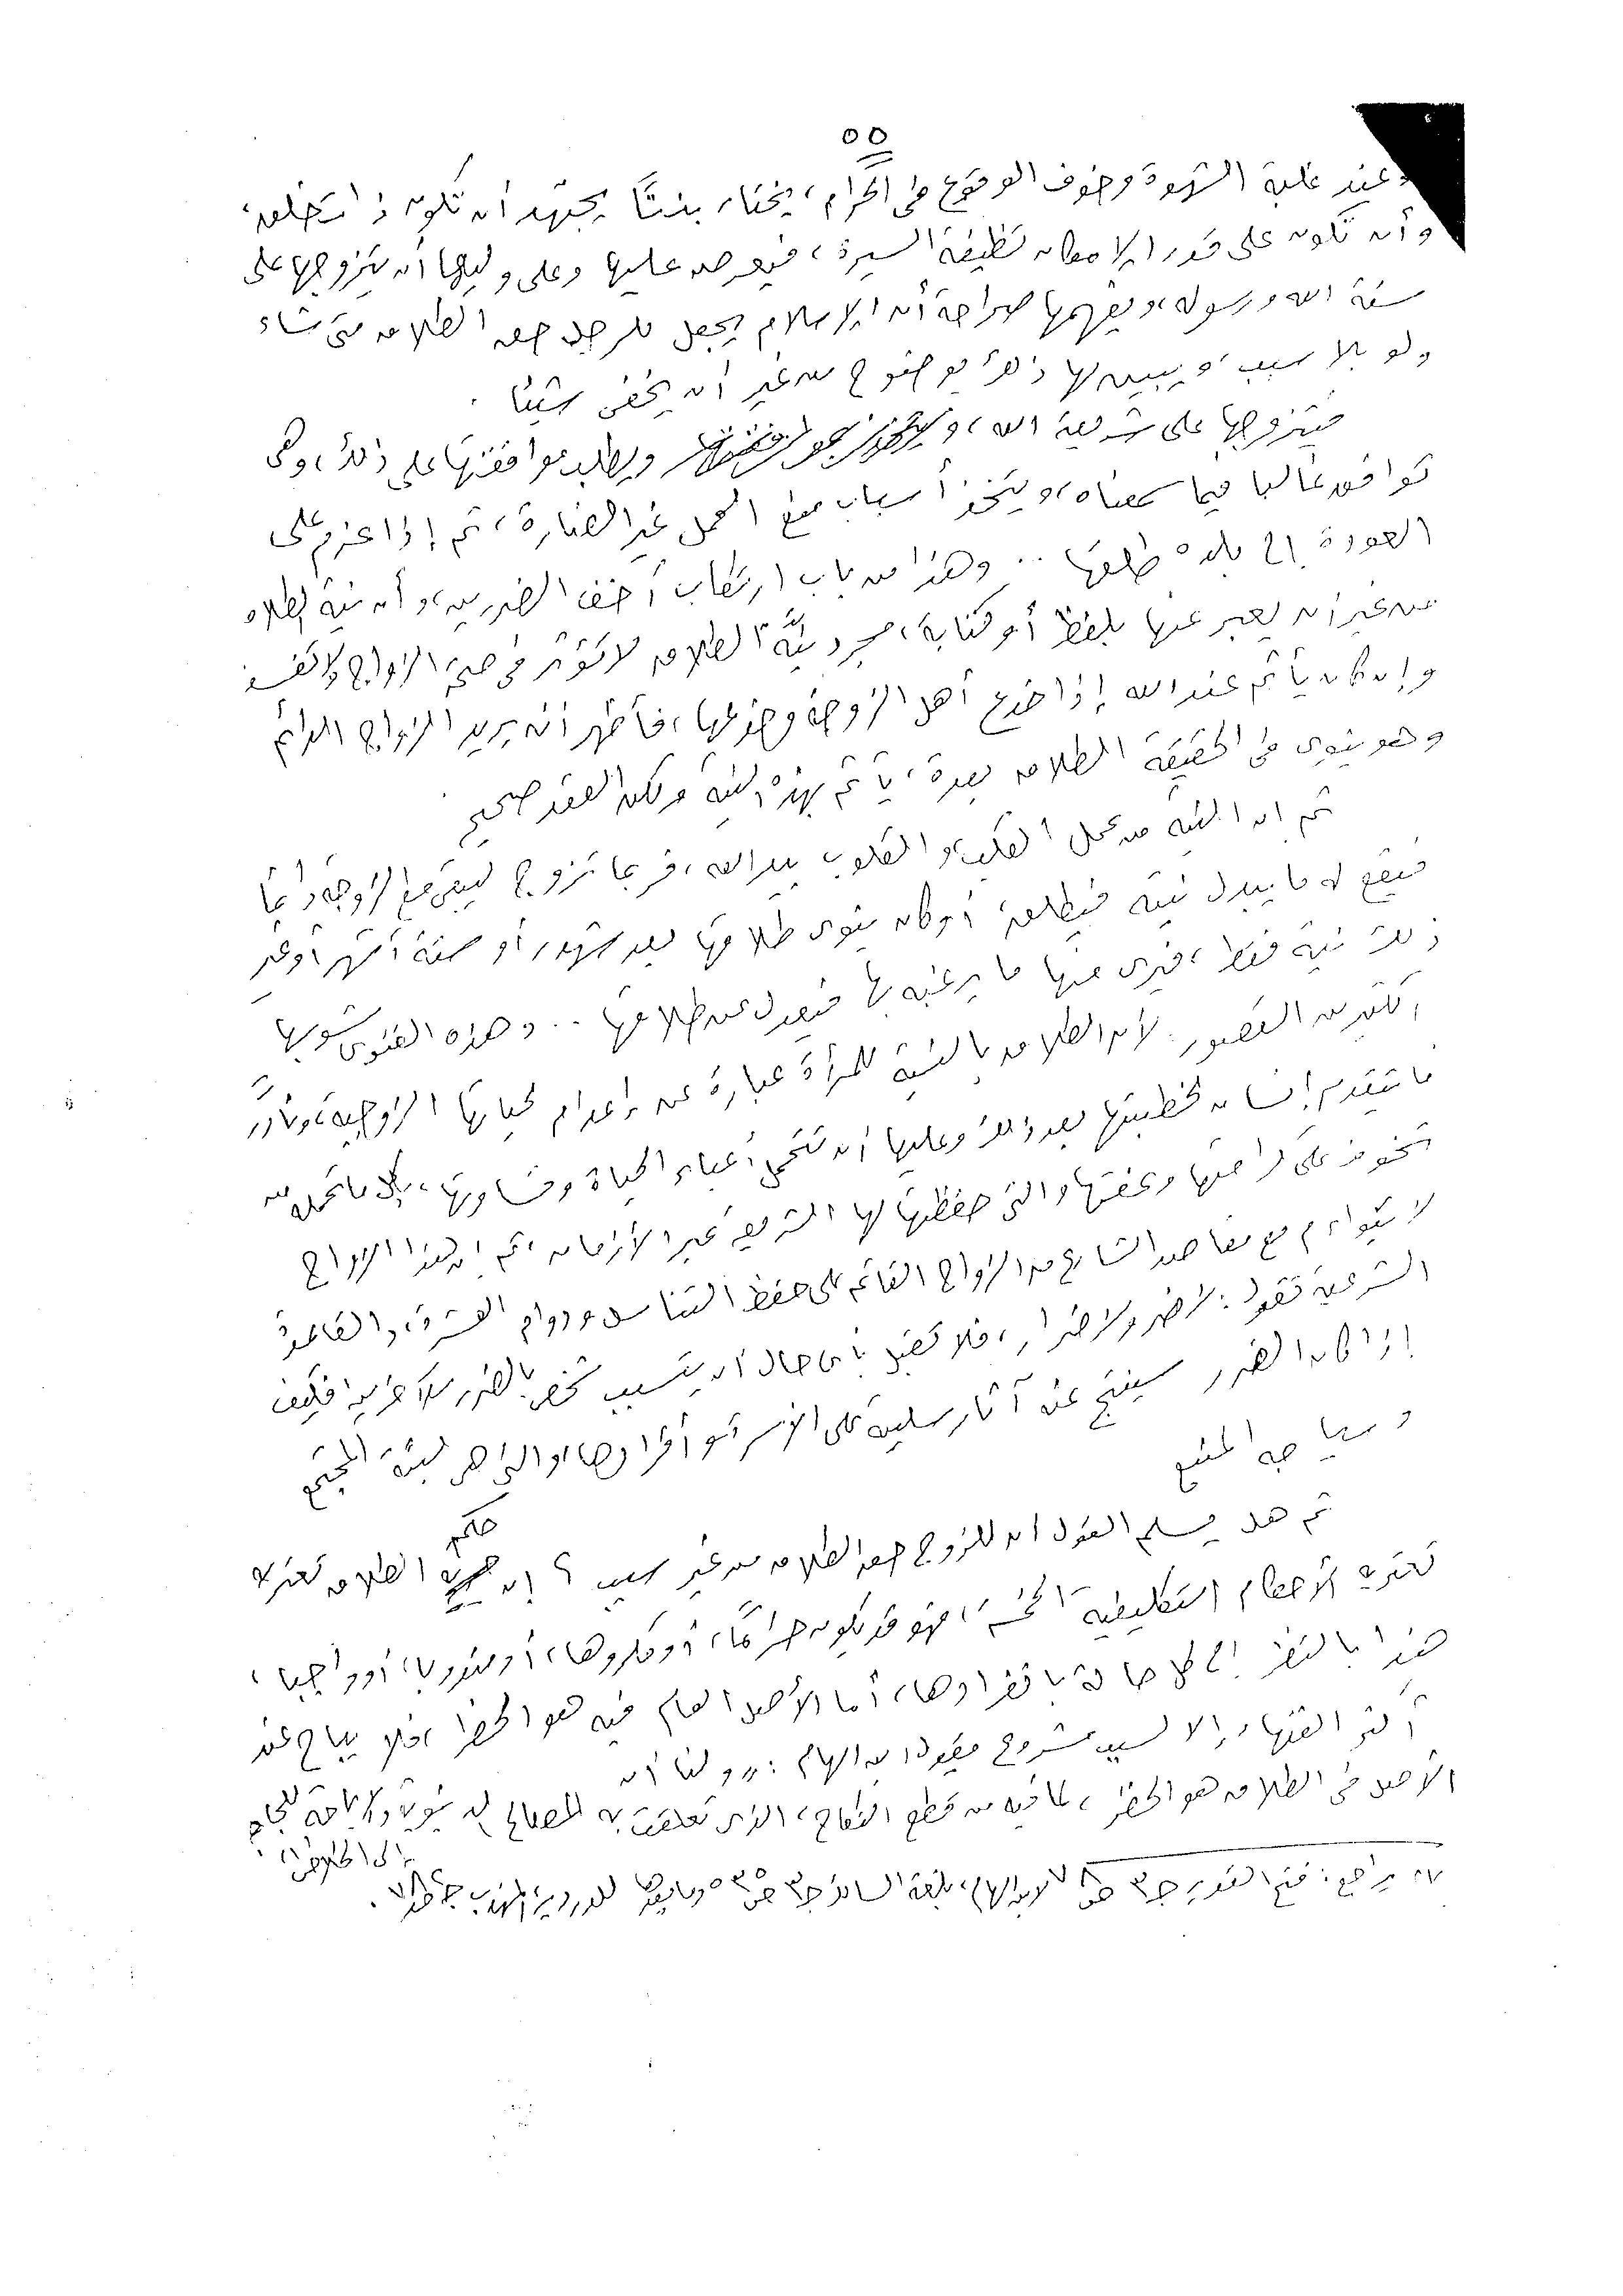 ٥٥
وعند غلبة الشهوة وخوف الوقوع في الحرام، يختار بنتاً يجتهد أن تكون ذات خلق،
وأن تكون على قدر الإمكان نظيفة السيرة، فيعرض عليها وعلى وليها أن يتزوجها على
سنة الله ورسوله، ويفهمها صراحة أن الإسلام يجعل للرجل حق الطلاق متى شاء
ولو بلا سبب، ويبين لها ذلك بوضوح من غير أن يخفى شيئا .
فيتزوجها على شريعة الله، ويطلب موافقتها على ذلك، وهى
توافق غالبا فيما سمعناه، ويتخذ أسباب منع الحمل غير الضارة، ثم إذا عزم على
العودة إلى بلده طلقها .. وهذا من باب ارتكاب أخف الضررين، وأن نية الطلاق
من غير أن يعبر عنها بلفظ أو كتابة، مجرد نيَّة الطلاق لا تؤثر في صحة الزواج
وإن كان يأثم عند الله إذا خدع أهل الزوجة وخدعها، فأظهر أنه يريد الزواج الدائم
وهو ينوى في الحقيقة الطلاق بعده، يأثم بهذه النية ولكن العقد صحيح
ثم ان النية من عمل القلب، والقلوب بيد الله، فربما تزوج ليبقى مع الزوجة دائما
فيقع له ما يبدل نيته فيطلق، أو كان ينوى طلاقها بعد شهر، أو ستة أشهر أو غير
ذلك نية فقط، فيرى منها ما يرغبه بها فيعدل عن طلاقها .. وهذه الفتوى يشوبها
الكثير من القصور: لأن الطلاق بالنسبة للمرأة عبارة عن إعدام لحياتها الزوجية، ونادراً
ما يتقدم إنسان لخطبتها بعد ذلك وعليها أن تتحمل أعباء الحياة وقساوتها، بكل ما تحمله من
تخوف على كرامتها وعفتها والتي حفظتها لها الشريعة عبر الأزمان، ثم إن هذا الزواج
لا يتواءم مع مقاصد الشارع من الزواج القائم على حفظ التناسل ودوام العشرة، والقاعدة
الشرعية تقول: لا ضرر ولا ضرار، فلا تقبل بأى حال أن يتسبب شخص بالضرر للآخرين، فكيف
إذا كان الضرر سينتج عنه آثار سلبية على الأسرة وأفرادها، والتى هى لبنة المجتمع
وسياجه المنيع
ثم هل يسلم القول أن للزوج حق الطلاق من غير سبب ؟ إن حكم الطلاق تعتريه
تعتريه الأحكام التكليفية الخمسة، فهو قد يكون حراماً، أو مكروها، أو مندوبا، أو واجبا،
هذا بالنظر إلى كل حالة بانفرادها، أما الأصل العام فيه هو الحظر، فلا يباح عند
أكثر الفقهاء إلا لسبب مشروع يقول ابن الهمام : «ولنا أن
الأصل في الطلاق هو الحظر، لما فيه من قطع النكاح، الذى تعلقت به المصالح الدينية والدنيوية والإباحة للحاجة
إلى الخلاص»
يراجع : فتح القدير جـ٣ لابن الهمام، بلغة السالك وما بعدها للدردير، المهذب